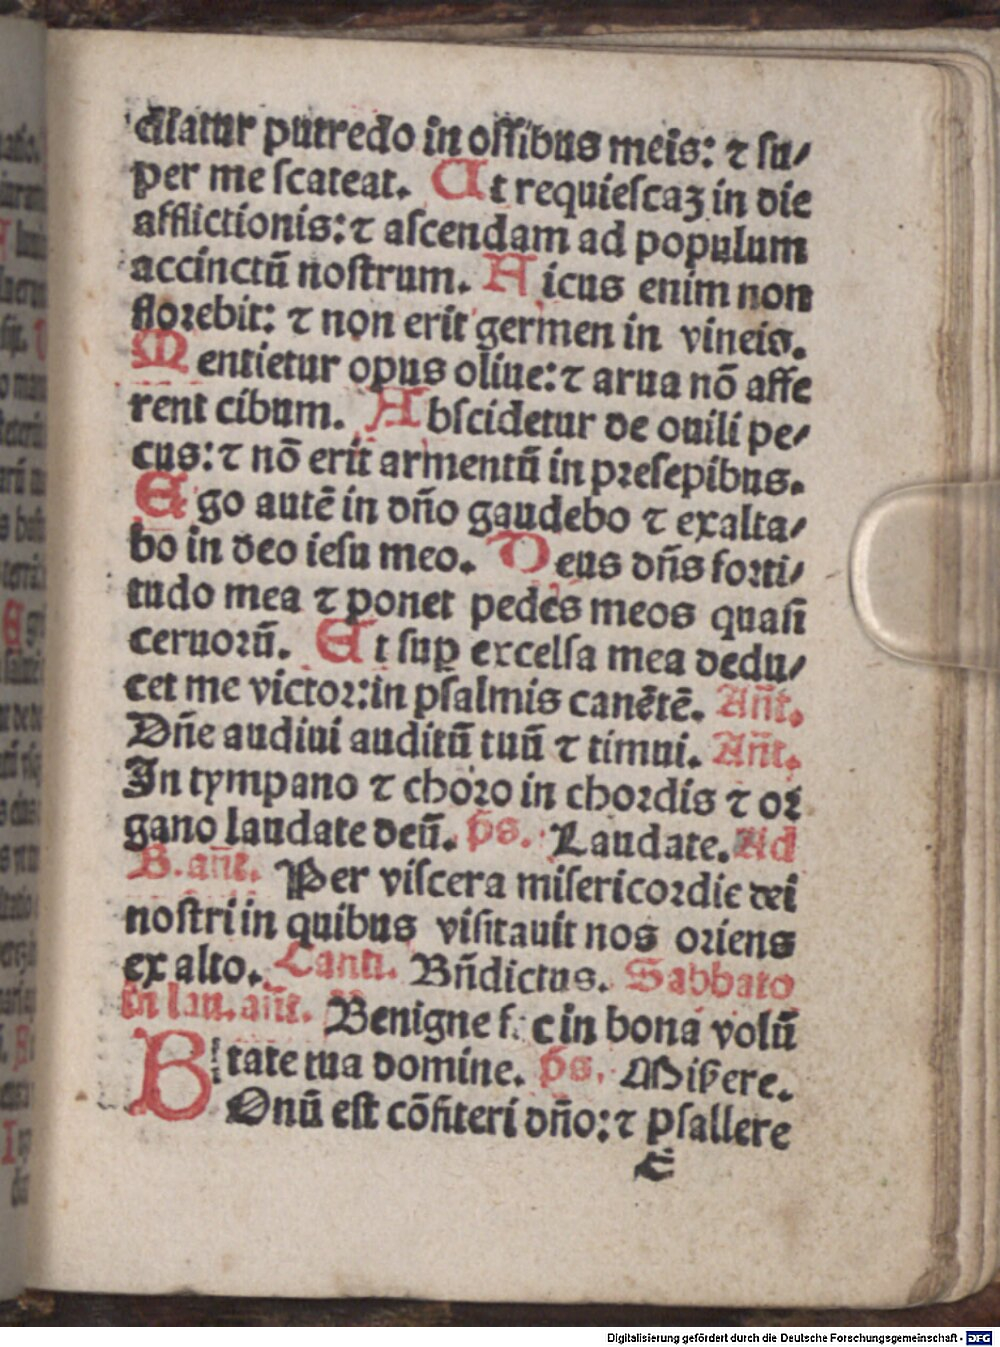 diatur putredo in ossibus meis: ⁊ su/
per me scateat. Ut requiescaꝫ in die
afflictionis: ⁊ ascendam ad populum
accinctū nostrum. Ficus enim non
florebit: ⁊ non erit germen in vineis.
Mentietur opus oliue: ⁊ arua nō affe
rent cibum. Abscidetur de ouili pe/
cus: ⁊ nō erit armentū in presepibus.
Ego autē in dño gaudebo ⁊ exalta/
bo in deo iesu meo. Deus dñs forti/
tudo mea ⁊ ponet pedes meos quasi
ceruorū. Et suꝑ excelsa mea dedu/
cet me victor: in psalmis canētē. Añt.
Dñe audiui auditū tuū ⁊ timui. Añt.
In tympano ⁊ choro in chordis ⁊ or
gano laudate deū. ps. Laudate. Ad
B. añt. Per viscera misericordie dei
nostri in quibus visitauit nos oriens
ex alto. Canti. Bñdictus. Sabbato
In lau. añt. Benigne f c in bona volū
tate tua domine. ps. Misere.
BOnū est cōfiteri dño: ⁊ psallere
E
Digitalisierung gefördert durch die Deutsche Forschungsgemeinschaft - DFG